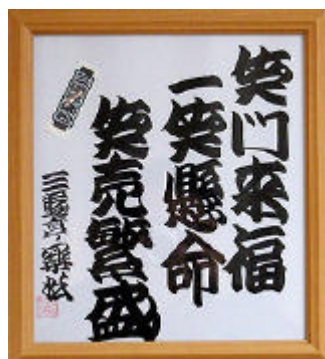 笑門来福
一笑懸命
笑売繁盛